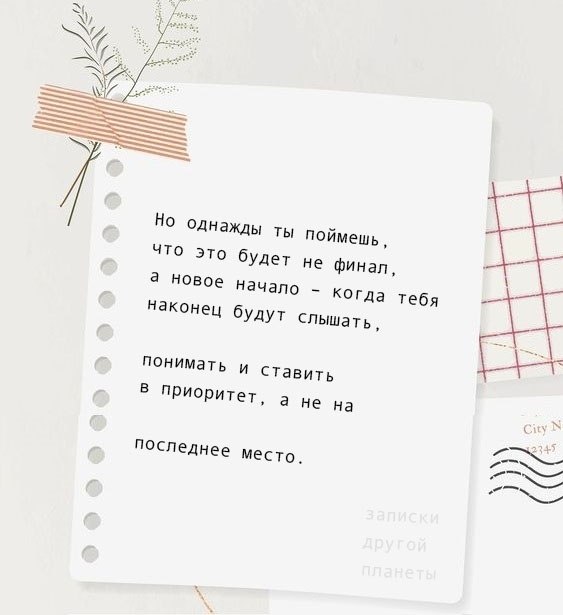 Но однажды ты поймешь,
что это будет не финал,
а новое начало – когда тебя
наконец будут слышать,
понимать и ставить
в приоритет, а не на
последнее место.
записки
другой
планеты
City N
12345